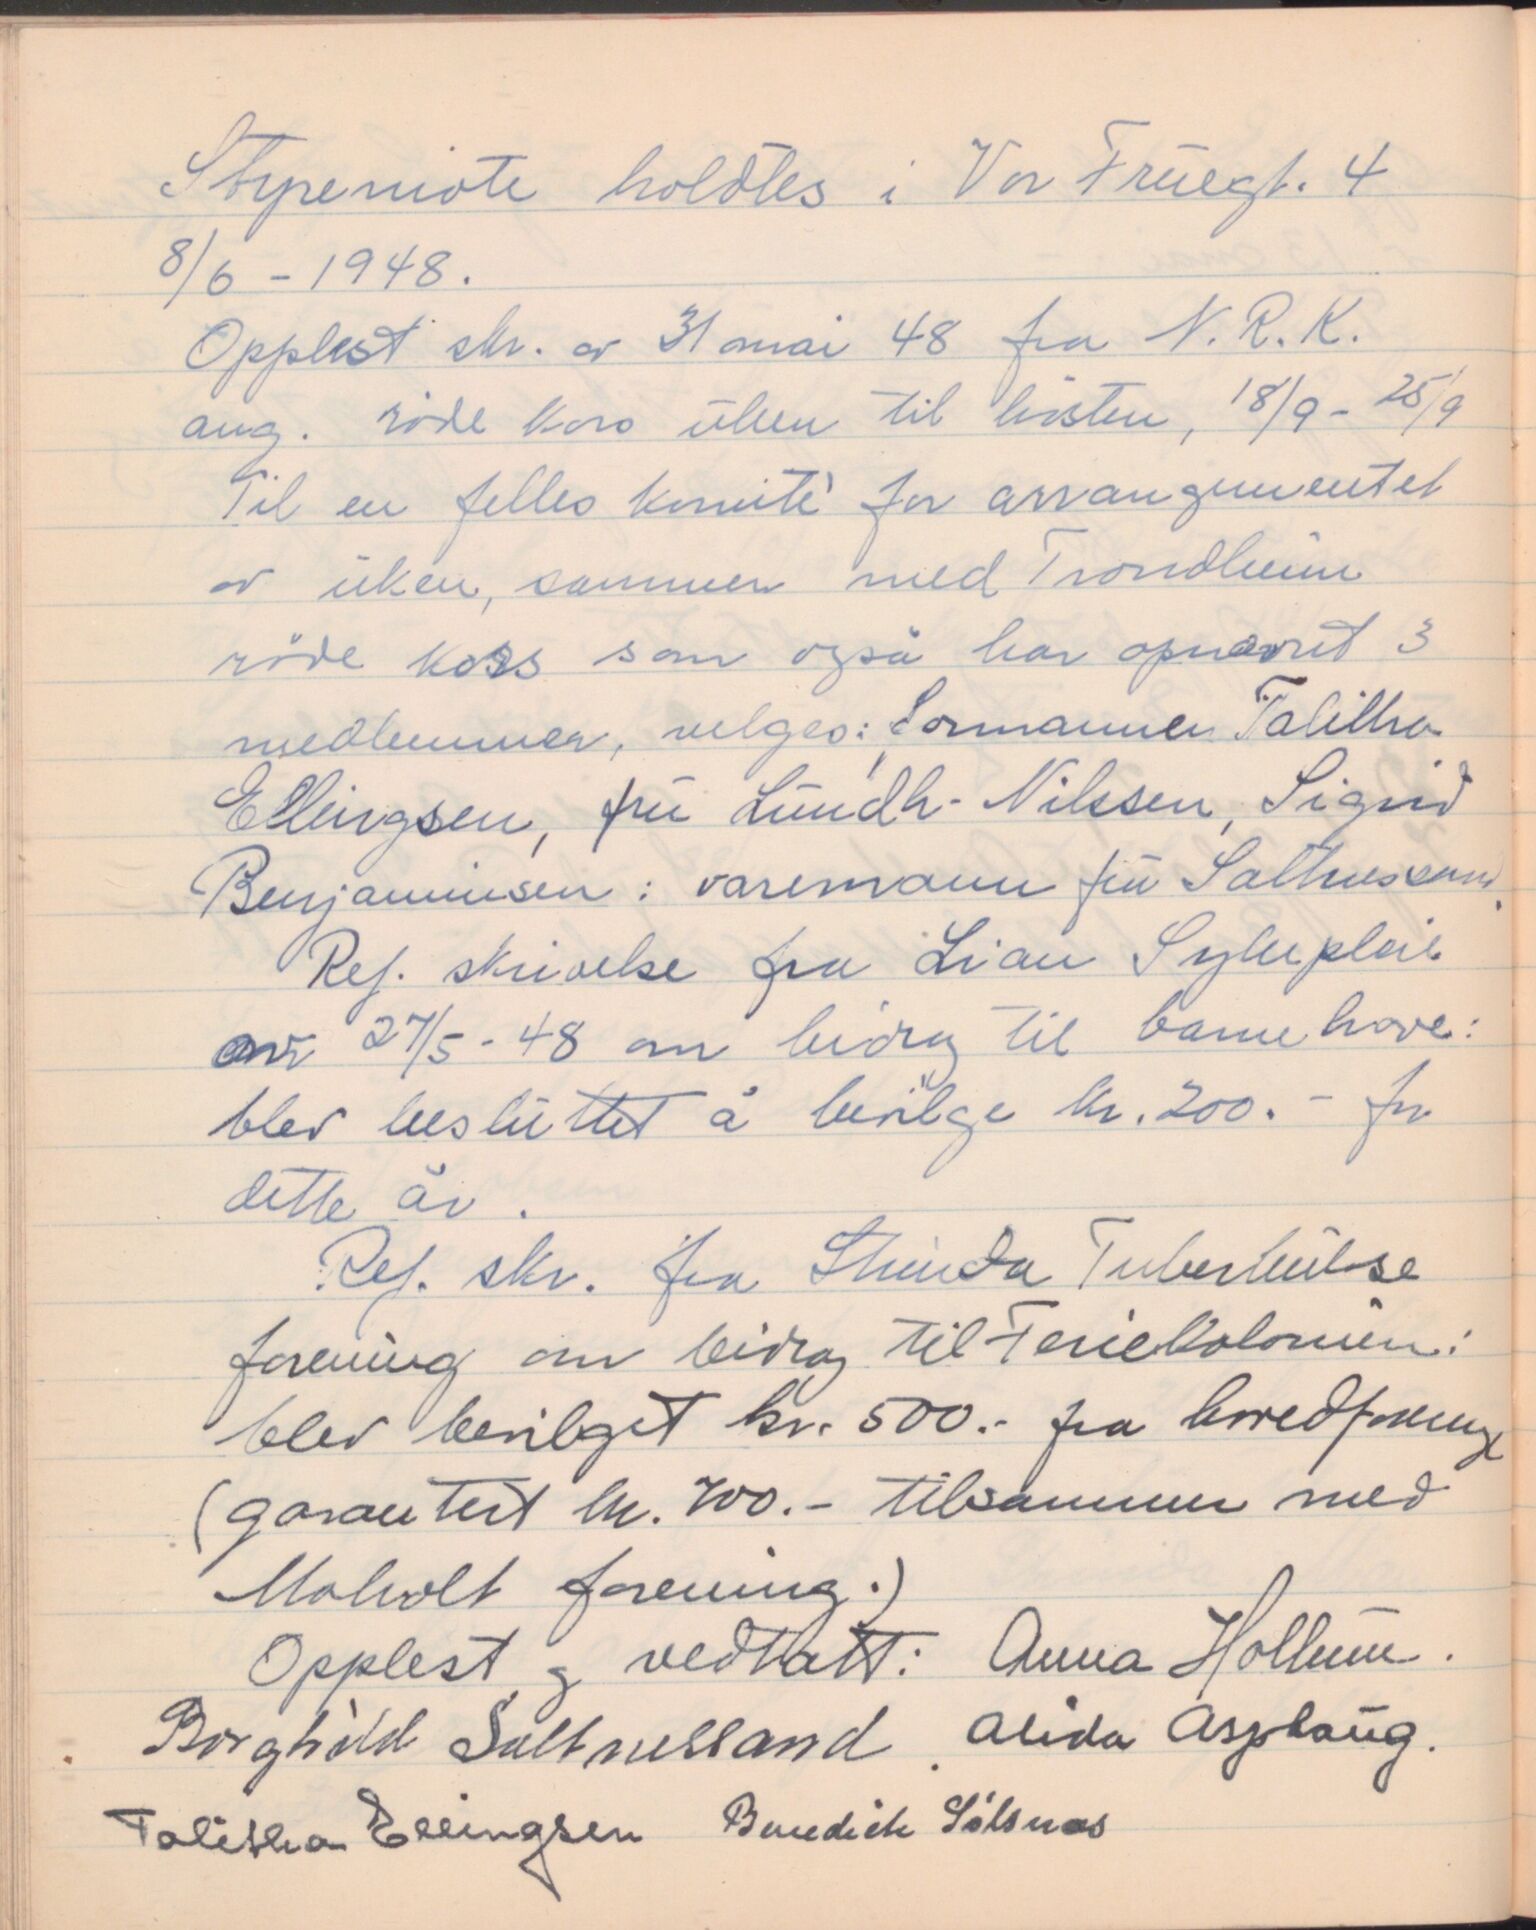 Styremöte holdtes i Vor Früegt. 4
8/6 - 1948.
Opplest skr. av 31 mai 48 fra N.R.K.
ang. röde kors üken til hösten, 18/9 - 25/9
Til en felles komité for arrangementet
av üken, sammen med Trondheim
röde kors som også har opnevnt 3
medlemmer, velges: Formannen Talitha
Ellingsen, frü Lündh-Nilssen, Sigrid
Benjaminsen: varemann frü Saltnessand.
Ref. skrivelse fra Lian Sykepleie
av 27/5 - 48 om bidrag til barnehave:
blev beslüttet å bevilge kr. 200.- for
dette år.
Ref. skr. fra Strinda Tuberkülose
forening om bidrag til Feriekolonien:
blev bevilget kr. 500.- fra hovedforening
(garantert kr. 700.- tilsammen med
Moholt forening.)
Opplest og vedtatt: Anna Hollum.
Borghild Saltnessand. Alida Asphaüg.
Talitha Ellingsen Benedicte Sölsnes